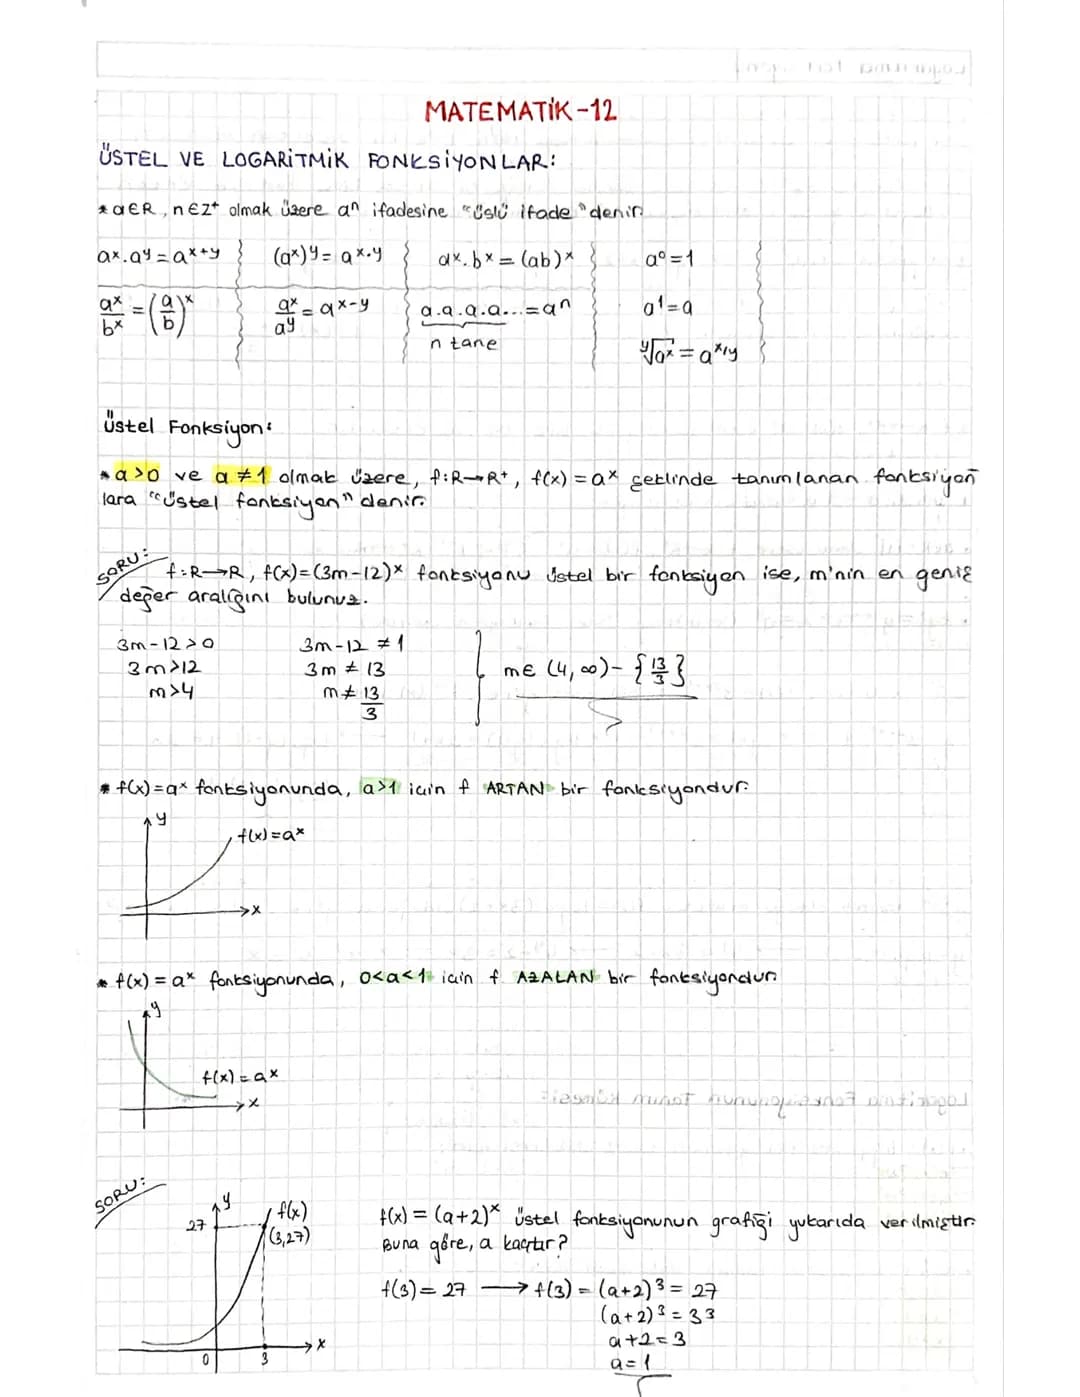 MATEMATİK-12
ÜSTEL VE LOGARİTMİK FONKSİYONLAR:
* a∈R, n∈Z⁺ olmak üzere aⁿ ifadesine "üslü ifade" denir.
aˣ.aʸ = aˣ⁺ʸ    (aˣ)ʸ = aˣ·ʸ    aˣ.bˣ = (ab)ˣ    a⁰=1
aˣ/bˣ = (a/b)ˣ    aˣ/aʸ = aˣ⁻ʸ    a.a.a.a...=aⁿ    a¹=a
n tane    ʸ√aˣ = aˣ/ʸ
Üstel Fonksiyon:
* a>0 ve a≠1 olmak üzere, f:R→R⁺, f(x)=aˣ şeklinde tanımlanan fonksiyon
lara "üstel fonksiyon" denir.
SORU: f:R→R, f(x)=(3m-12)ˣ fonksiyonu üstel bir fonksiyon ise, m'nin en geniş
değer aralığını bulunuz.
3m-12>0    3m-12≠1
3m>12    3m≠13    m∈ (4,∞)-{13/3}
m>4    m≠13/3
* f(x)=aˣ fonksiyonunda, a>1 için f ARTAN bir fonksiyondur.
y
f(x)=aˣ
x
* f(x)=aˣ fonksiyonunda, 0<a<1 için f AZALAN bir fonksiyondur.
y
f(x)=aˣ
x
SORU:
y
27    f(x)    f(x)=(a+2)ˣ üstel fonksiyonunun grafiği yukarıda verilmiştir.
(3,27)    Buna göre, a kaçtır?
f(3)=27 → f(3)=(a+2)³=27
(a+2)³=3³
a+2=3
x
0    3    a=1